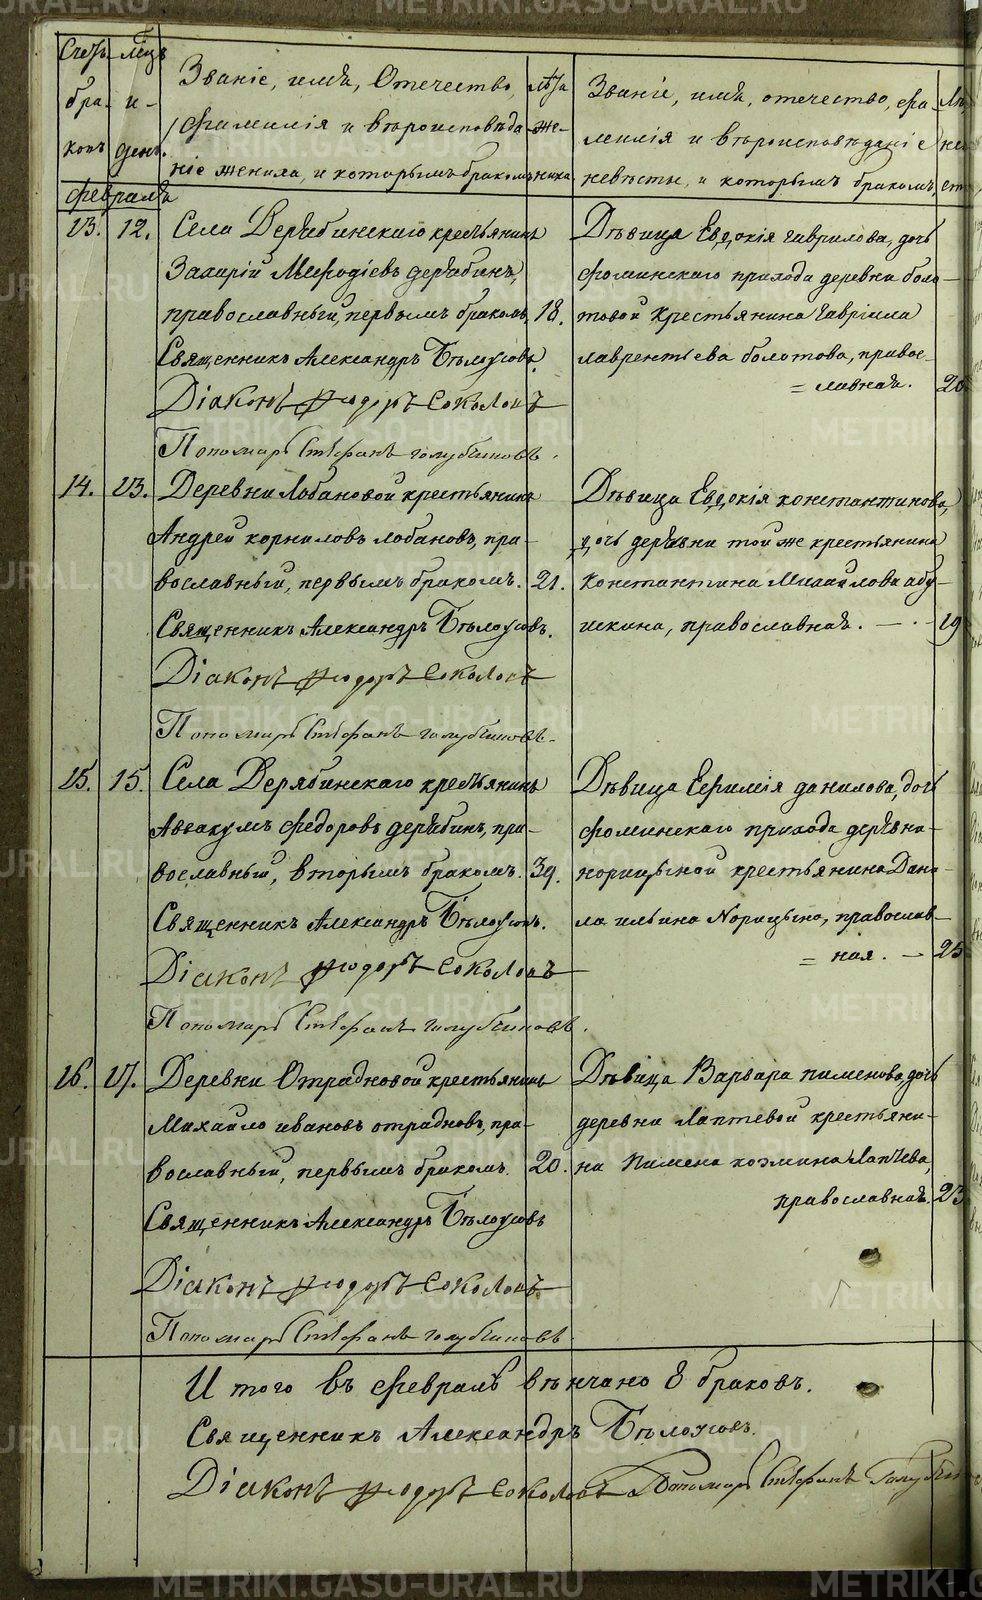 METRIKI.GASO-URAL.RU
Счетъ браковъ
Мѣсяцъ и день
Званіе, имя, Отчество,
фамилія и вѣроисповѣда-
ніе жениха, и которымъ бракомъ
лѣта жениха
Званіе, имя, отечество, фа-
милія и вѣроисповѣданіе
невѣсты, и которымъ бракомъ
Февраль
13. 12. Села Дерябинскаго крестьянинъ
Захарій Меѳодіевъ дерябинъ,
православный, первымъ бракомъ. 18.
Священникъ Александръ Бѣлоусовъ.
Діаконъ Ѳеодоръ Соколовъ
Пономарь Стефанъ Голубчиковъ.
Дѣвица Евдокія гаврилова, дочь
фоминскаго прихода деревни боло-
товой крестьянина Гавріила
лаврентьева болотова, правос-
= лавная. 20
14. 13. Деревни Лобановой крестьянинъ
Андрей корниловъ лобановъ, пра-
вославный, первымъ бракомъ. 21.
Священникъ Александръ Бѣлоусовъ.
Діаконъ Ѳеодоръ Соколовъ
Пономарь Стефанъ Голубчиковъ.
Дѣвица Евдокія константинова,
дочь деревни той же крестьянина
константина Михайлова абу-
шкина, православная. 19
15. 15. Села Дерябинскаго крестьянинъ
Аввакумъ Федоровъ дерябинъ, пра-
вославный, вторымъ бракомъ. 39.
Священникъ Александръ Бѣлоусовъ.
Діаконъ Ѳеодоръ Соколовъ
Пономарь Стефанъ Голубчиковъ.
Дѣвица Евфимія данилова, дочь
фоминскаго прихода деревни
норицыной крестьянина Дани-
ла ильина Норицына, православ-
= ная. 25
16. 17. Деревни Отрадновой крестьянинъ
Михайло ивановъ отрадновъ, пра-
вославный, первымъ бракомъ. 20.
Священникъ Александръ Бѣлоусовъ
Діаконъ Ѳеодоръ Соколовъ.
Пономарь Стефанъ Голубчиковъ.
Дѣвица Варвара пименова, дочь
деревни Лаптевой крестьяни-
на Пимена козмина Лаптева,
православная. 23
Итого въ февралѣ вѣнчано 8 браковъ.
Священникъ Александръ Бѣлоусовъ.
Діаконъ Ѳеодоръ Соколовъ Пономарь Стефанъ